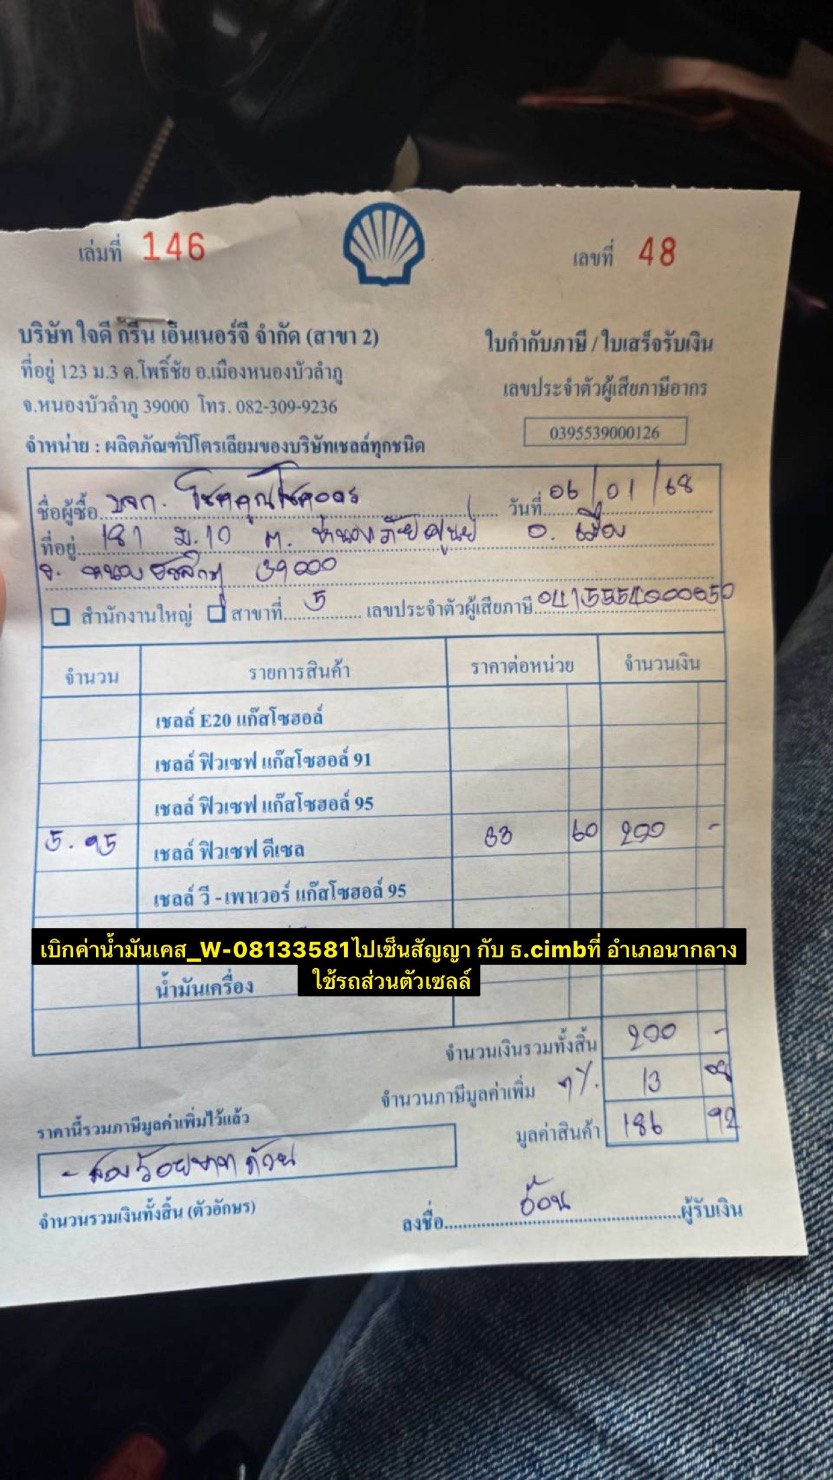 เล่มที่ 146
เลขที่ 48
บริษัท ใจดี กรีน เอ็นเนอร์จี จำกัด (สาขา 2)
ที่อยู่ 123 ม.3 ต.โพธิ์ชัย อ.เมืองหนองบัวลำภู
จ.หนองบัวลำภู 39000 โทร. 082-309-9236
จำหน่าย : ผลิตภัณฑ์ปิโตรเลียมของบริษัทเชลล์ทุกชนิด
ใบกำกับภาษี / ใบเสร็จรับเงิน
เลขประจำตัวผู้เสียภาษีอากร
0395539000126
ชื่อผู้ซื้อ หจก. โชคคูณโชค วันที่ 06/01/68
ที่อยู่ 181 ม.10 ต. อ. เมือง
จ. 39000
สำนักงานใหญ่ สาขาที่ 5 เลขประจำตัวผู้เสียภาษี
จำนวน รายการสินค้า ราคาต่อหน่วย จำนวนเงิน
เชลล์ E20 แก๊สโซฮอล์
เชลล์ ฟิวเซฟ แก๊สโซฮอล์ 91
เชลล์ ฟิวเซฟ แก๊สโซฮอล์ 95
5.95 เชลล์ ฟิวเซฟ ดีเซล 33 60 200 -
เชลล์ วี - เพาเวอร์ แก๊สโซฮอล์ 95
เบิกค่าน้ำมันเคส_W-08133581ไปเซ็นสัญญา กับ ธ.cimbที่ อำเภอนากลาง
ใช้รถส่วนตัวเซลล์
น้ำมันเครื่อง
จำนวนเงินรวมทั้งสิ้น 200 -
จำนวนภาษีมูลค่าเพิ่ม 7%. 13 08
มูลค่าสินค้า 186 92
ราคานี้รวมภาษีมูลค่าเพิ่มไว้แล้ว
- สองร้อยบาทถ้วน
จำนวนรวมเงินทั้งสิ้น (ตัวอักษร)
ลงชื่อ ผู้รับเงิน